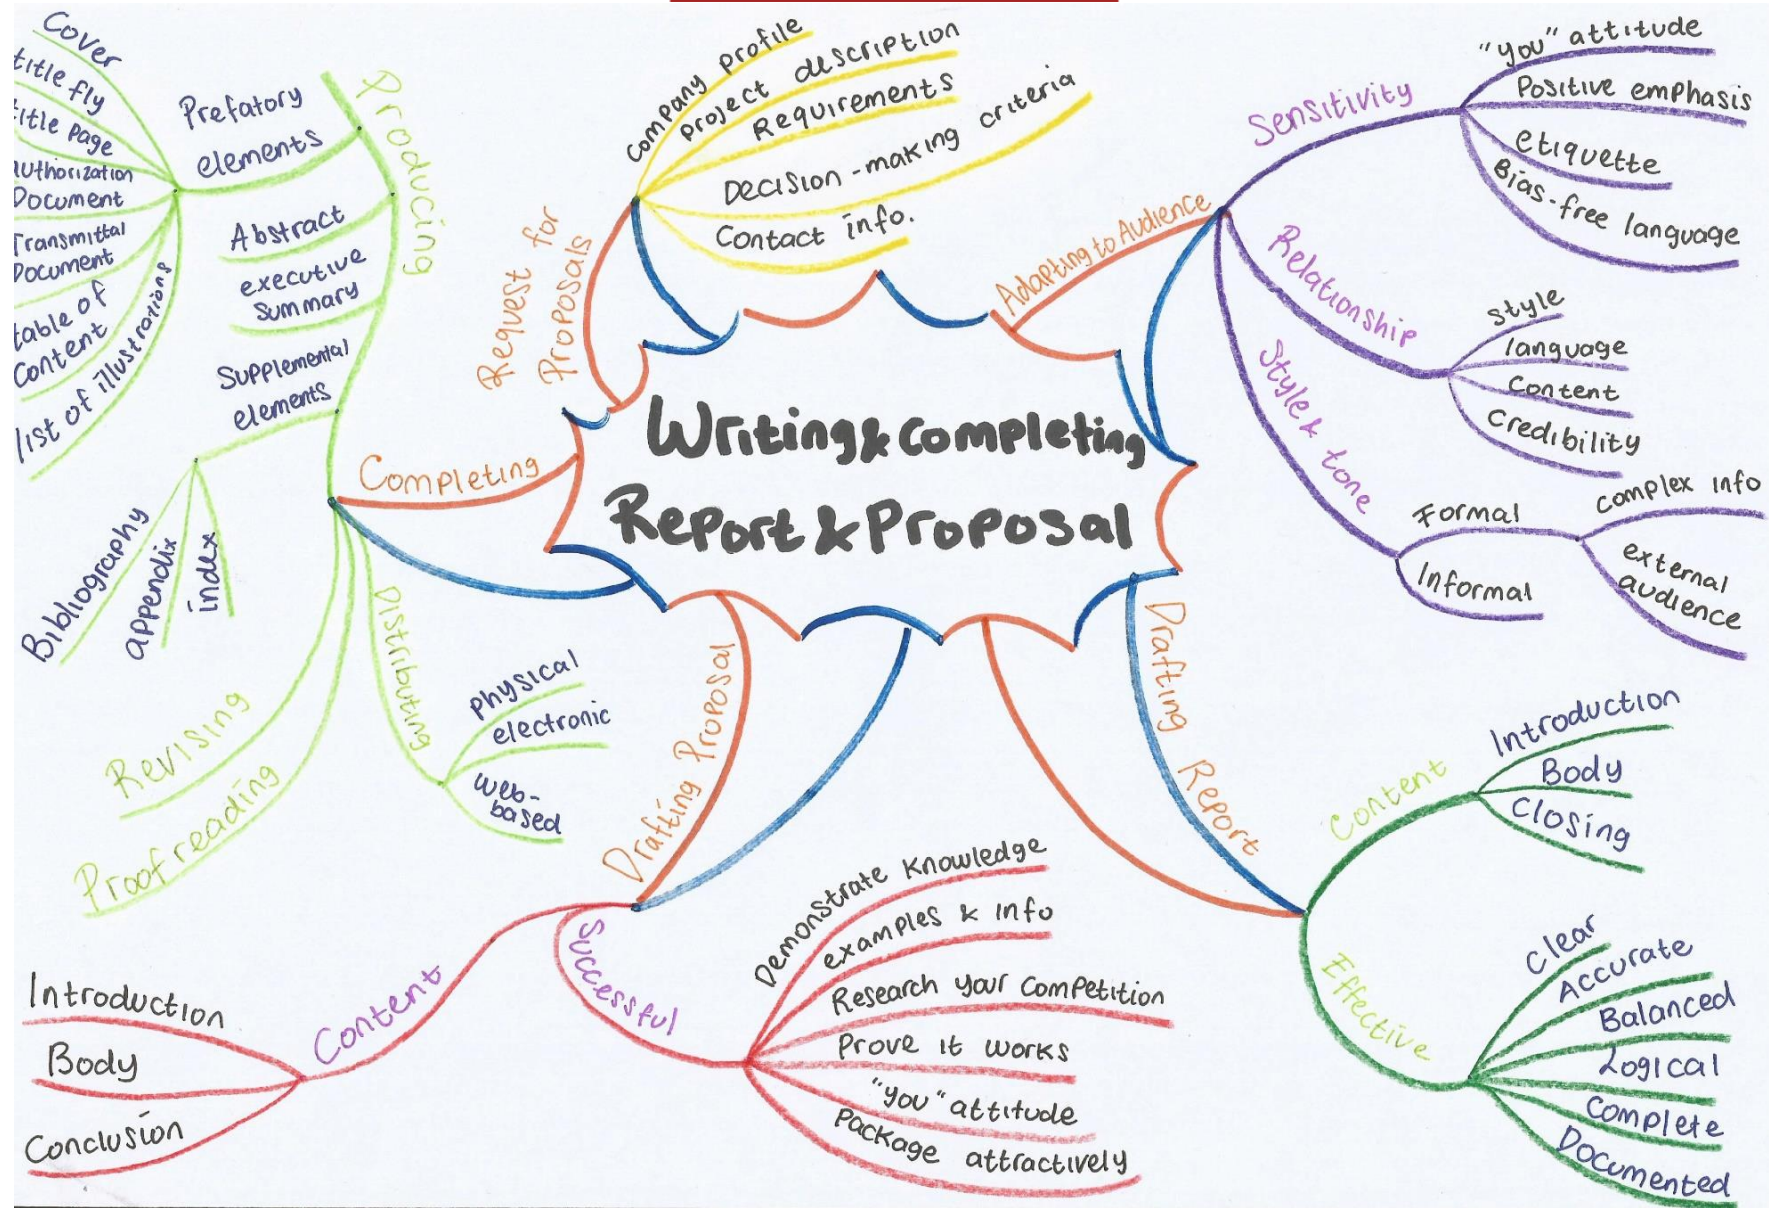 Writing & completing
Report & Proposal
Request for
Proposals
company profile
project description
Requirements
Decision-making criteria
Contact info.
Adapting to Audience
Sensitivity
"you" attitude
Positive emphasis
etiquette
Bias-free language
Relationship
style
language
content
credibility
Style & tone
Formal
complex info
external
audience
Informal
Drafting Report
Content
Introduction
Body
Closing
Effective
Clear
Accurate
Balanced
Logical
Complete
Documented
Drafting Proposal
Successful
Demonstrate Knowledge
examples & info
Research your competition
Prove it works
"you" attitude
Package attractively
Content
Introduction
Body
Conclusion
Completing
Producing
Prefatory
elements
Cover
title fly
title page
authorization
Document
Transmittal
Document
table of
content
list of illustrations
Abstract
executive
summary
Supplemental
elements
Bibliography
appendix
index
Distributing
physical
electronic
web-
based
Revising
Proofreading